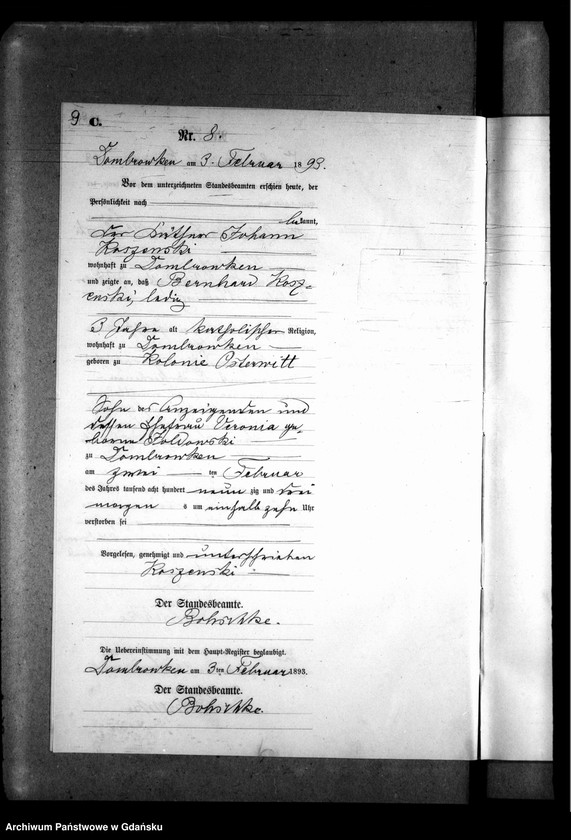 9 C.
Nr. 8.
Dombrowken am 3. Februar 1893.
Vor dem unterzeichneten Standesbeamten erschien heute, der
Persönlichkeit nach
bekannt,
der Käthner Johann
Koszenski
wohnhaft zu Dombrowken
und zeigte an, daß Bernhard Kosz-
enski, ledig
3 Jahre alt katholischer Religion,
wohnhaft zu Dombrowken
geboren zu Kolonie Osterwitt
Sohn des Anzeigenden und
dessen Ehefrau Veronia ge-
borne
zu Dombrowken
am zwei ten Februar
des Jahres tausend acht hundert neun zig und drei
morgen s um einhalb zehn Uhr
verstorben sei
Vorgelesen, genehmigt und unterschrieben
Koszenski
Der Standesbeamte.
Die Uebereinstimmung mit dem Haupt-Register beglaubigt.
Dombrowken am 3ten Februar 1893.
Der Standesbeamte.
Archiwum Państwowe w Gdańsku